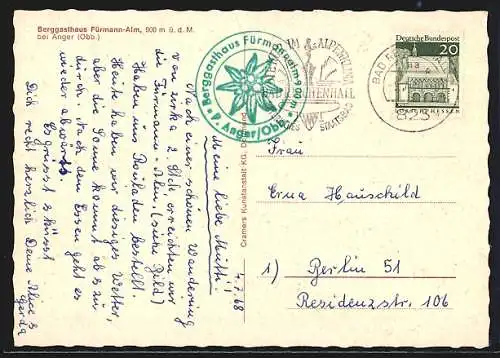 Berggasthaus Fürmann-Alm, 900 m ü. d. M.
bei Anger (Obb.)
4.7.68
Meine liebe Mutti.
Nach einer schönen Wanderung
von zirka 2 Std. erreichten wir
die Fürmann-Alm. (siehe Bild)
Haben uns Rouladen bestellt.
Heute haben wir diesiges Wetter,
die Sonne kommt ab & zu
durch. Nach dem Essen geht es
wieder abwärts.
Es grüsst & küsst
Dich recht herzlich Deine Alice &
Gerda
Cramers Kunstanstalt KG,
Berggasthaus Fürmannalm 900 m
P. Anger/Obb.
IM ALPENKLIMA
BAD REICHENHALL
BAD
Deutsche Bundespost
20
Frau
Erna Hauschild
1) Berlin 51
Residenzstr. 106